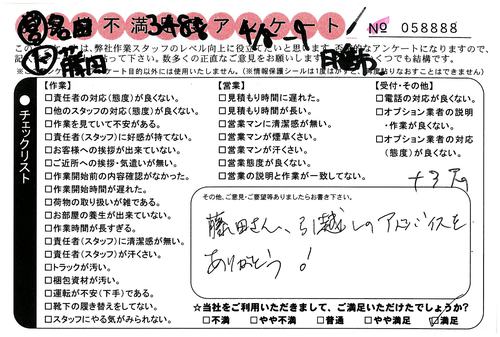 不満足度アンケート
№ 058888
藤田
このアンケートは、弊社作業スタッフのレベル向上に役立てたいと思います。
数多くの正直なご意見をお願いします。
いくつでも結構です。
チェックリスト
【作業】
□責任者の対応(態度)が良くない。
□他のスタッフの対応(態度)が良くない。
□作業を見ていて不安がある。
□責任者(スタッフ)に好感が持てない。
□お客様への挨拶が出来ていない。
□ご近所への挨拶・気遣いが無い。
□作業開始前の内容確認がなかった。
□作業開始時間が遅れた。
□荷物の取り扱いが雑である。
□お部屋の養生が出来ていない。
□作業時間が長すぎる。
□責任者(スタッフ)に清潔感が無い。
□責任者(スタッフ)が汗くさい。
□トラックが汚い。
□梱包資材が汚い。
□運転が不安(下手)である。
□靴下の履き替えをしてない。
□スタッフにやる気がみられない。
【営業】
□見積もり時間に遅れた。
□見積もり時間が長い。
□営業マンに清潔感が無い。
□営業マンが煙草くさい。
□営業マンが汗くさい。
□営業態度が良くない。
□営業の説明と作業が一致してない。
【受付・その他】
□電話の対応が良くない。
□オプション業者の説明
・作業が良くない。
□オプション業者の対応
(態度)が良くない。
その他、ご意見・ご要望等ありましたらお書き下さい。
藤田さん、引越しのアドバイスを
ありがとう!
☆当社をご利用いただきまして、ご満足いただけたでしょうか?
□不満 □やや不満 □普通 □やや満足 □満足